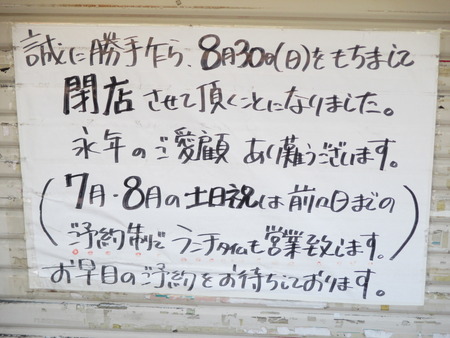 誠に勝手乍ら、8月30日(日)をもちまして
閉店させて頂くことになりました。
永年のご愛顧あり難うございます。
(7月・8月の土日祝は前の日までの
ご予約制でランチタイムも営業致します。)
お早目のご予約をお待ちしております。